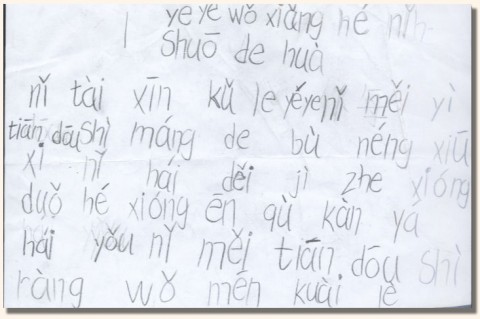 yéye wǒ xiǎng hé nǐ
Shuō de huà
nǐ tài xīn kǔ le yéyenǐ měi yì
tiān dōuShì máng de bù néng xiū
xi nǐ hái děi jì zhe xióng
duǒ hé xióng ēn qù kàn yá
hái yǒu nǐ měi tiān dōu shì
ràng wǒ mén kuài lè